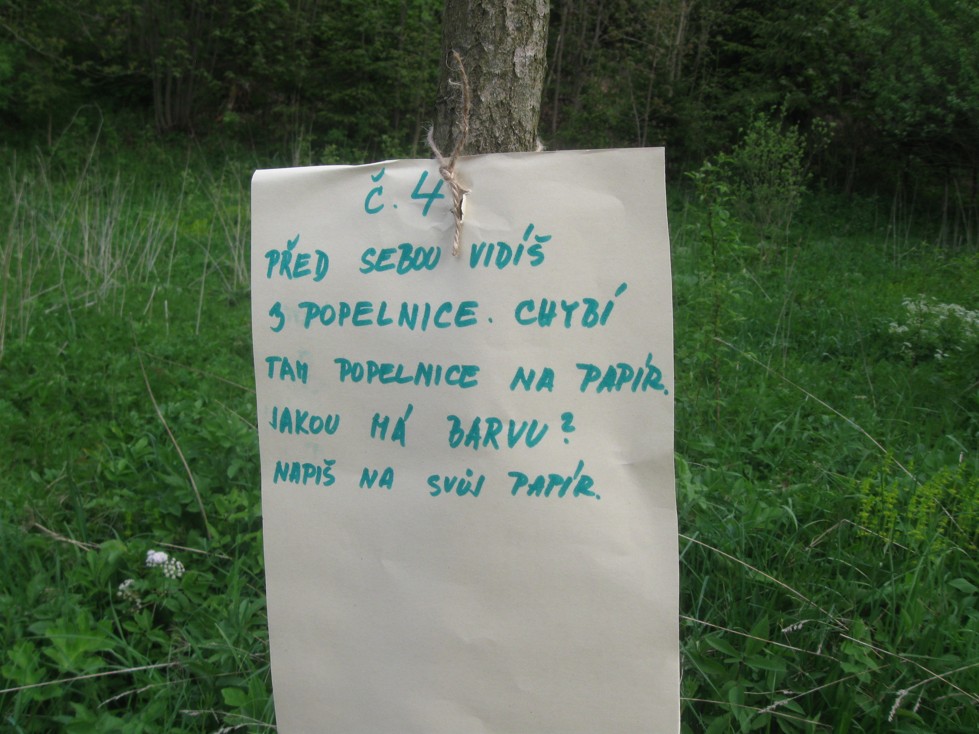 Č. 4
PŘED SEBOU VIDÍŠ
3 POPELNICE. CHYBÍ
TAM POPELNICE NA PAPÍR.
JAKOU MÁ BARVU?
NAPIŠ NA SVŮJ PAPÍR.